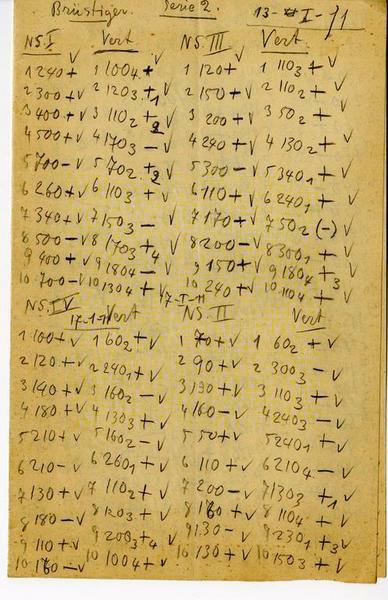 Brüstiger. Serie 2. 13-I-11
NS.I Vert NS III Vert.
1 240+ 1 1004+ 1 120+ 1 1103+V
2 300+V 2 1203+1 2 150+V 2 1102+V
3 400+V 3 1102+2 3 200+V 3 502+V
4 500+V 4 1703-V 4 240+V 4 1302+V
5 700-V 5 702+2 5 300-V 5 3401+V
6 260+V 6 1103+V 6 110+V 6 2401+V
7 340+V 7 1503-V 7 170+V 7 502(-)V
8 500-V 8 1703+4V 8 200-V 8 3001+V
9 400+V 9 1804-V 9 150+V 9 1804+3
10 700-V 10 1304+V 10 240+V 10 1104+V
17-I-11
NS.IV Vert NS.II Vert
17-1-11
1 100+V 1 602+V 1 70+V 1 602+V
2 120+V 2 2401+V 2 90+V 2 3003-V
3 140+V 3 1602-V 3 130+V 3 1103+V
4 180+V 4 1303+V 4 160-V 4 2403-V
5 210+V 5 1602-V 5 50+V 5 2401+V
6 210-V 6 2601+V 6 110+V 6 2104-V
7 130+V 7 1102+V 7 200-V 7 1303+1V
8 180-V 8 1203+V 8 160+V 8 1104+V
9 110+V 9 2003+4V 9 130-V 9 2301+3V
10 160-V 10 1004+V 10 130+V 10 1503+V